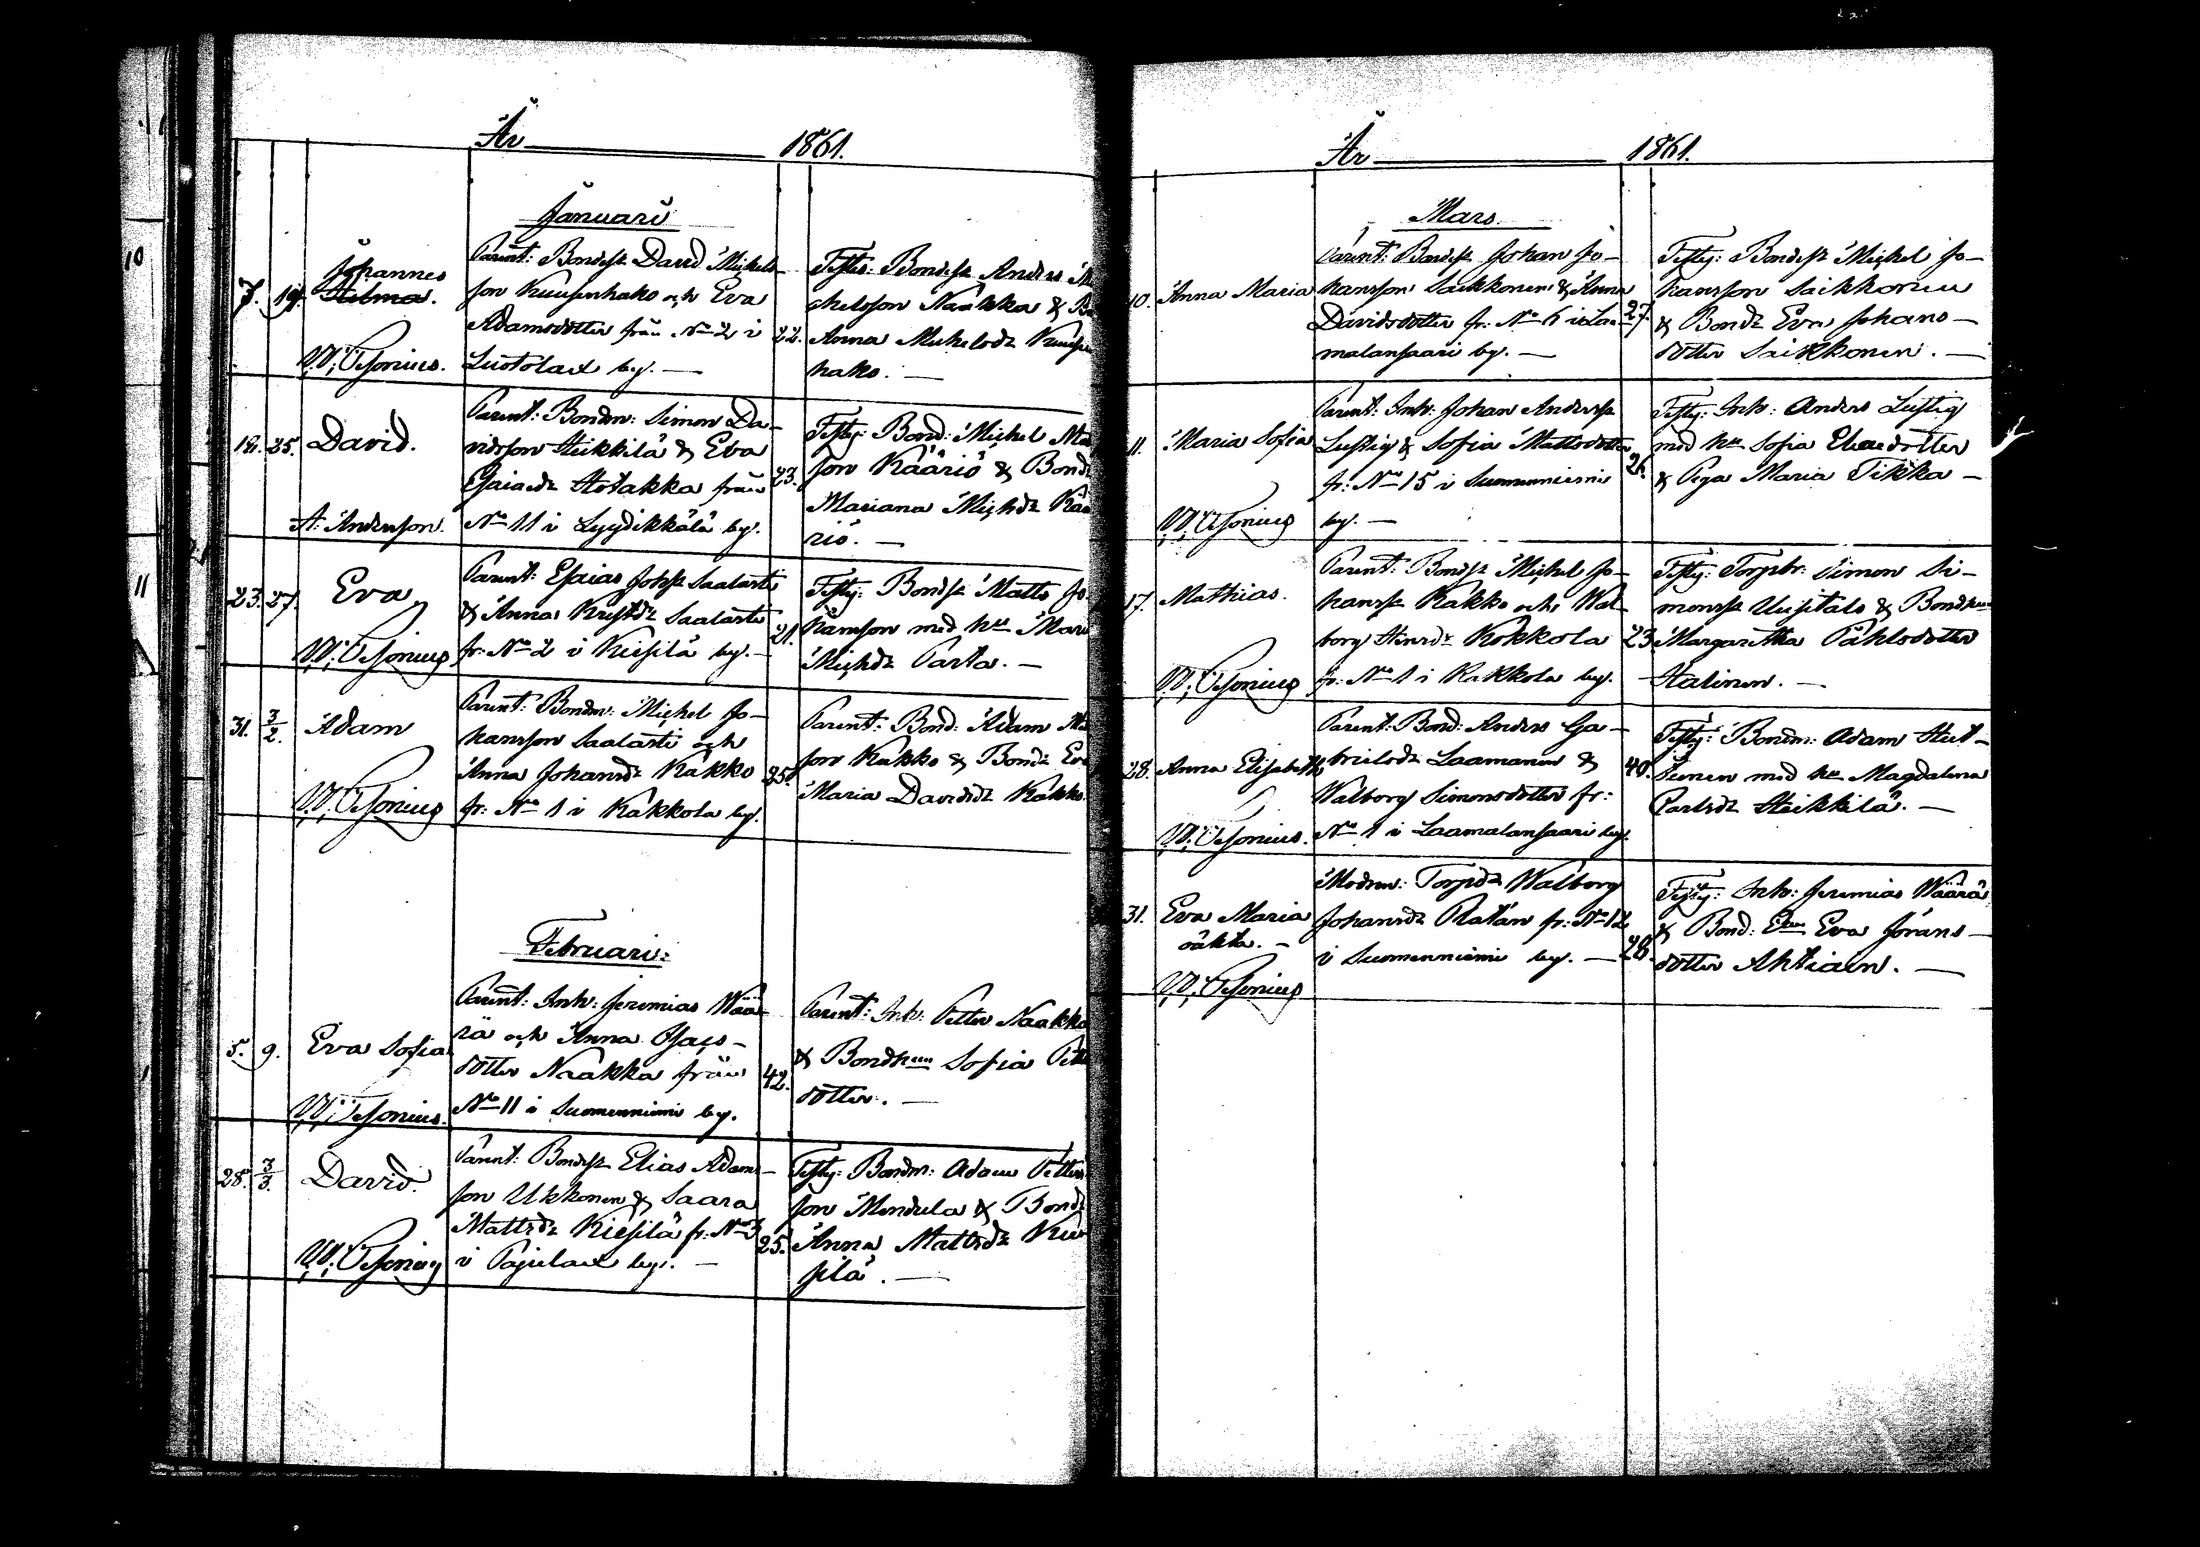 År 1861.
Januari
7. 19. Johannes
Hilma.
W. Cesonius.
Parent: Bondesk David Mickels-
son Kuusenhako och Eva
Adamsdotter från No 2 i
Luotolax by. —
22.
Testes: Bondesk Anders Mi
chelsson Naakka & Bo
Anna Michelsdr Kuuse
hako. —
18. 25. David.
A. Anderson.
Parent: Bondm: Simon Da-
vidsson Heikkilä & Eva
Esaiaedr Hotakka från
No 11 i Lyydikkälä by.
23.
Testg: Bond: Michel Ma
son Kääriö & Bond
Mariana Michdr Kää
riö. —
23. 27. Eva
W. Cesonius
Parent: Esaias Johsk Saalasti
& Anna Kristdr Saalasti
fr: No 2 i Kiesilä by. —
21.
Testg: Bondsk Matts Jo
hansson med hu Mari
Michdr Parta. —
31. 3/2. Adam
W. Cesonius
Parent: Bondm: Michel Jo-
hansson Saalasti och
Anna Johansdr Kakko
fr: No 1 i Kakkola by.
25.
Parent: Bond: Adam Ma
son Kakko & Bondr Ev
Maria Davidsdr Kakko.
Februari:
5. 9. Eva Sofia
W. Cesonius.
Parent: Inh: Jeremias Wää-
rä och Anna Isacs-
dotter Naakka från
No 11 i Suomenniemi by.
42.
Parent: Inh: Petter Naakka
& Bondhun Sofia Pette
dotter. —
28. 3/3. David.
W. Cesonius
Parent: Bondesk Elias Adams-
son Ukkonen & Saara
Mattsdr Kiesilä fr: No 3
i Pajulax by. —
25.
Testg: Bondm: Adam Petters
son Mendula & Bondr
Anna Mattsdr Kie
silä. —
År 1861.
Mars.
10. Anna Maria
Parent: Bondesk Johan Jo-
hansson Saikkonen & Anna
Davidsdotter fr: No 6 i Laa-
malansaari by. —
27.
Testg: Bondesk Michel Jo-
hansson Saikkonen
& Bondr Eva Johans-
dotter Saikkonen. —
11. Maria Sofia
W. Cesonius
Parent: Inh: Johan Anderssk
Lustig & Sofia Mattsdotter
fr: No 15 i Suomenniemi
by. —
26.
Testg: Inh: Anders Lustig
med hu Sofia
& Piga Maria Tikka —
17. Mathias.
W. Cesonius
Parent: Bondsk Michel Jo-
hanssk Kakko och Wal-
borg Henrdr Kokkola
fr: No 1 i Kakkola by.
23.
Testg: Torpbr: Simon Si-
monssk Uusitalo & Bondhun
Margaretha Påhlsdotter
Halinen. —
28. Anna Elisabeth
W. Cesonius.
Parent: Bond: Anders Ga-
brielsdr Laamanen &
Walborg Simonsdotter fr:
No 1 i Laamalansaari by.
40.
Testg: Bondm: Adam Heit-
med hu Magdalena
Carlsdr Heikkilä. —
31. Eva Maria
oäkta. —
W. Cesonius
Modren: Torpdr Walborg
Johansdr Ratän fr: No 12
i Suomenniemi by. —
28.
Testg: Inh: Jeremias Wäärä
& Bond: Eva Görans-
dotter Ahtiain. —
10
11